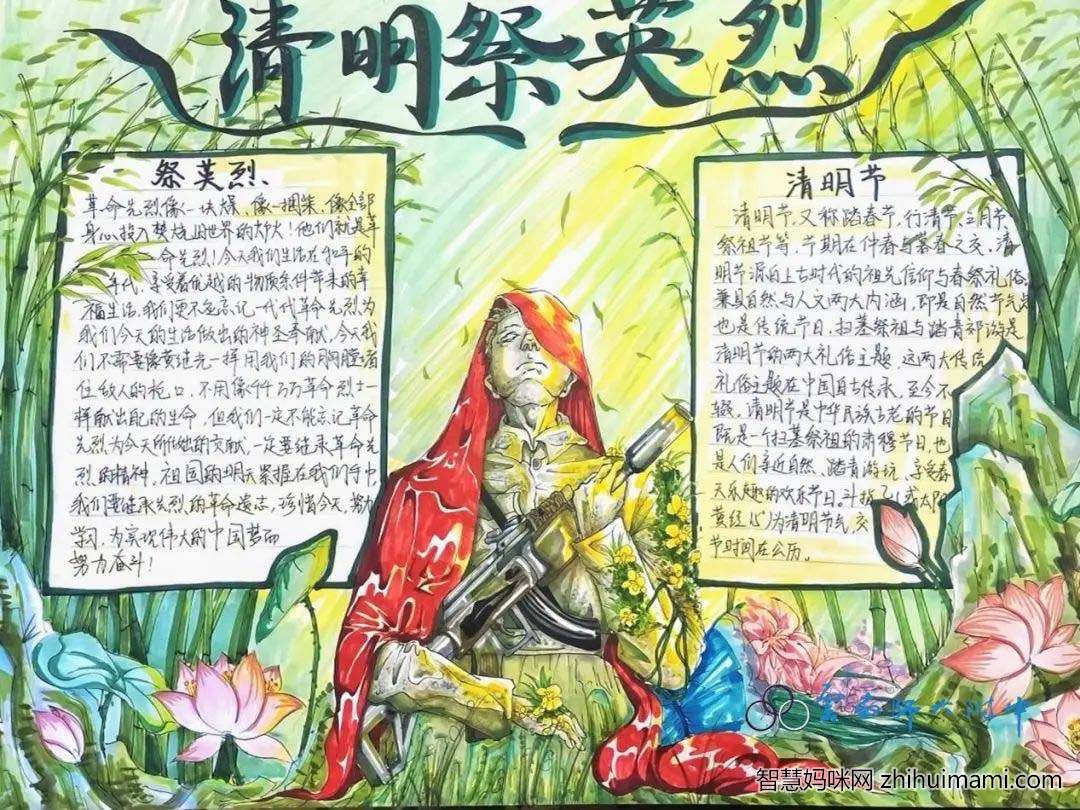 清明祭英烈
祭英烈
革命先烈像一块煤、像一捆柴、像全部
身心投入焚烧旧世界的大火!他们就是革
命先烈!今天我们生活在和平的
年代,享受着优越的物质条件带来的幸
福生活,我们更不应忘记一代代革命先烈为
我们今天的生活做出的神圣奉献,今天我
们不需要像黄继光一样用我们的胸膛堵
住敌人的枪口,不用像千千万万革命烈士一
样献出自己的生命,但我们一定不能忘记革命
先烈为今天所做出的贡献,一定要继承革命先
烈的精神,祖国的明天掌握在我们手中
我们要继承先烈的革命遗志,珍惜今天,努力
学习,为实现伟大的中国梦而
努力奋斗!
清明节
清明节,又称踏春节、行清节、三月节
祭祖节等,节期在仲春与暮春之交,清
明节源自上古时代的祖先信仰与春祭礼俗
兼具自然与人文两大内涵,即是自然节气点
也是传统节日,扫墓祭祖与踏青郊游是
清明节的两大礼俗主题,这两大传统
礼俗主题在中国自古传承,至今不
辍,清明节是中华民族古老的节日
既是一个扫墓祭祖的肃穆节日,也
是人们亲近自然、踏青游玩、享受春
天乐趣的欢乐节日,斗指乙(或太阳
黄经)为清明节气,交
节时间在公历。
师大附中
智慧妈咪网 zhihuimami.com